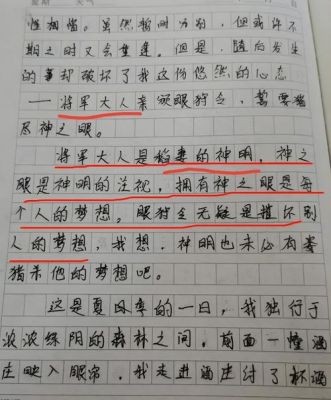 天气
性相惜。虽然暂时为别,但或许不
期之时又会重逢。但是,随后发生
的事却破坏了我这份悠然的心态
——将军大人亲颁眼狩令,誓要猎
尽神之眼。
将军大人是稻妻的神明,神之
眼是神明的注视,拥有神之眼是每
个人的梦想。眼狩令无疑是摧坏别
人的梦想,我想,神明也未必有着
猎杀他的梦想吧。
这是夏风季的一日,我独行于
浓浓绿阴的森林之间,前面一幢酒
庄映入眼帘,我走进酒庄付了杯酒